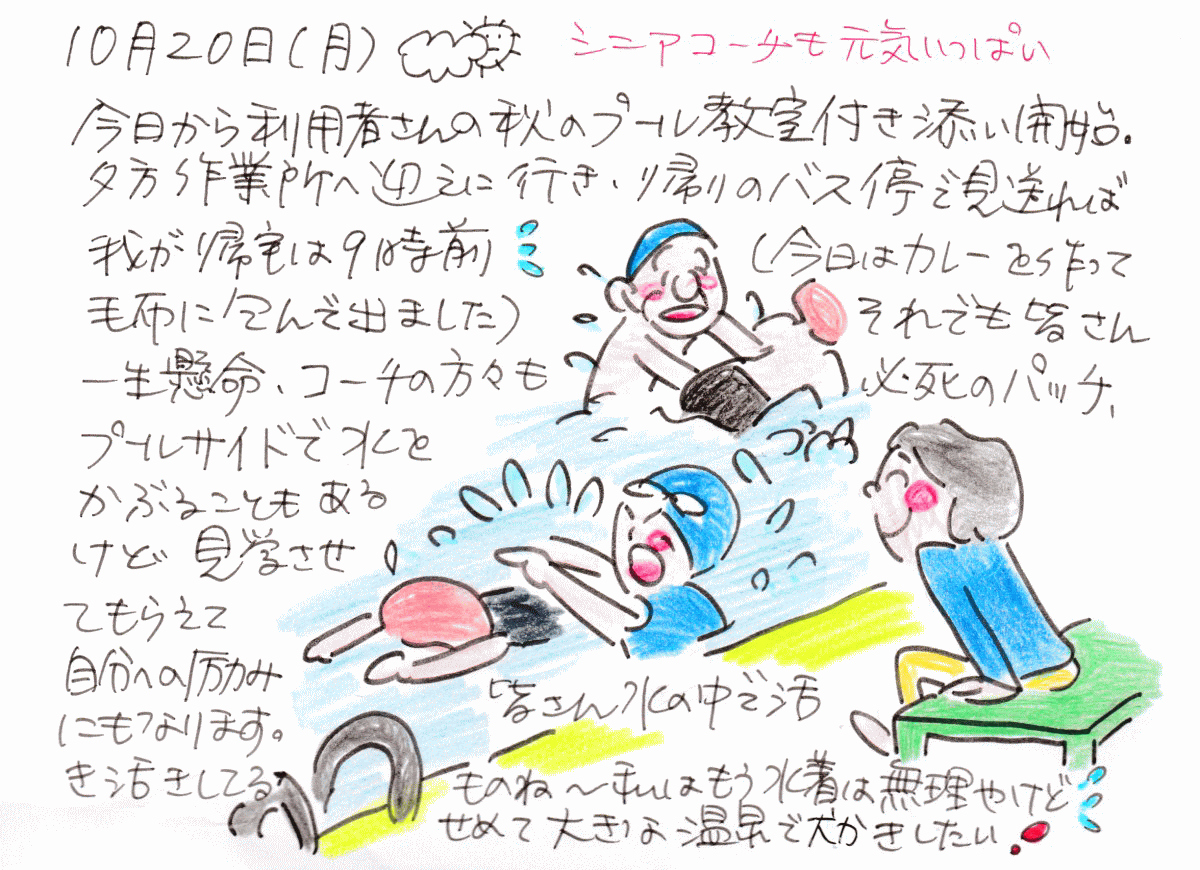 10月20日(月)
シニアコーチも元気いっぱい
今日から利用者さんの秋のプール教室付き添い開始.
夕方作業所へ迎えに行き、帰りのバス停で見送れば
我が帰宅は9時前 (今日はカレーを作って
毛布に包んで出ました) それでも皆さん
一生懸命、コーチの方々も 必死のパッチ、
プールサイドで水を
かぶることもある
けど 見学させ
てもらえて
自分への励み
にもなります。
皆さん水の中で活
き活きしてる
ものね〜私はもう水着は無理やけど
せめて大きな温泉で犬かきしたい!